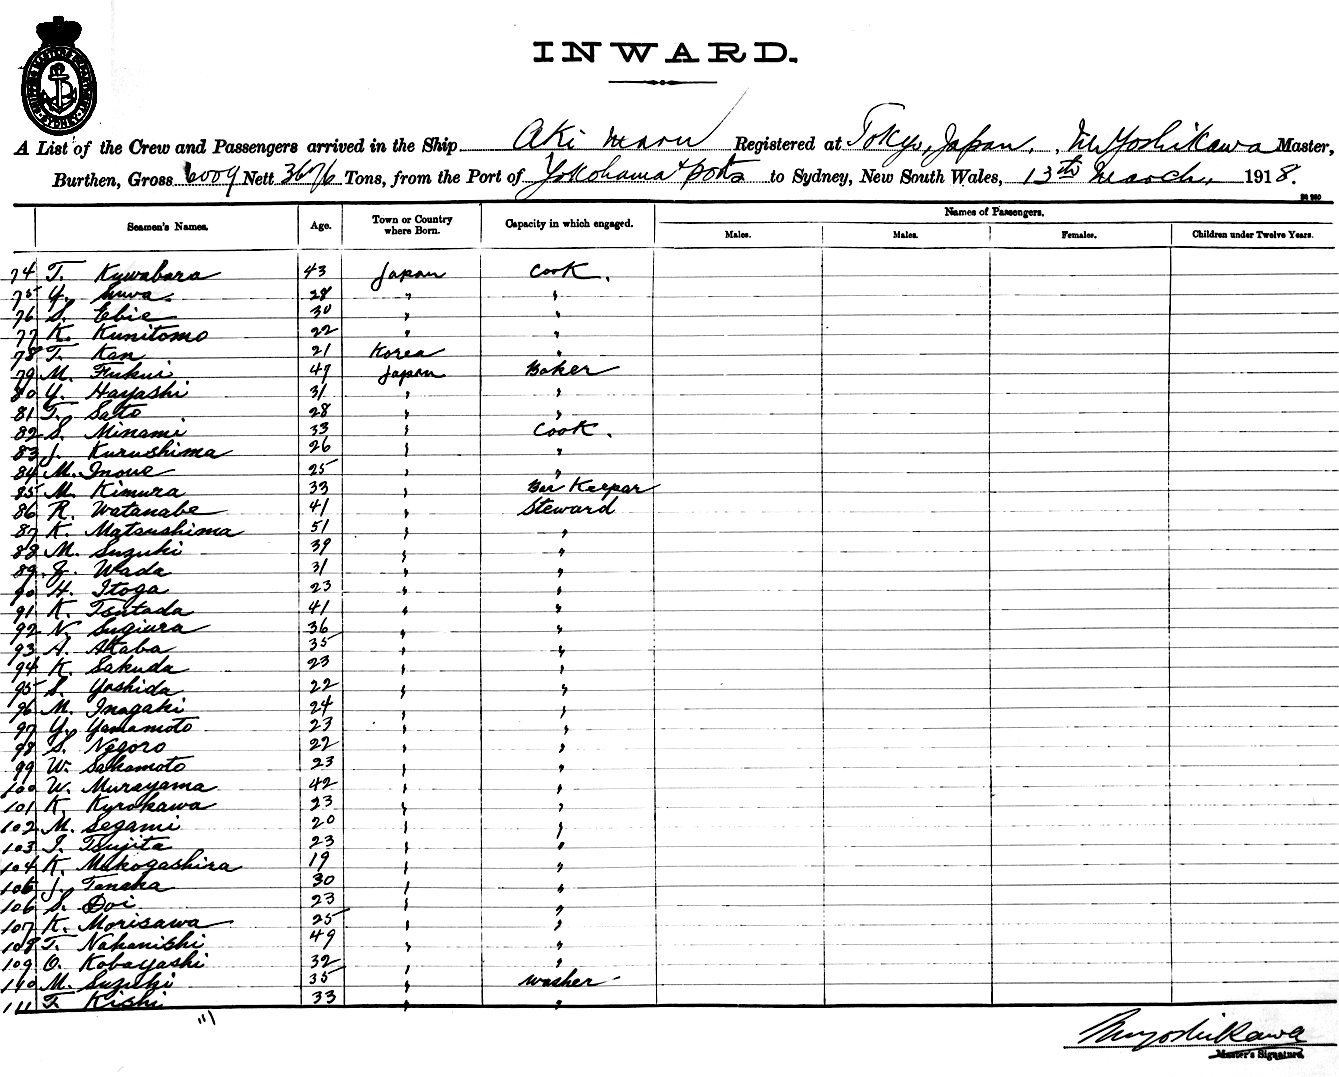 INWARD.
A List of the Crew and Passengers arrived in the Ship Aki Maru Registered at Tokyo, Japan, M Yoshikawa Master,
Burthen, Gross 6009 Nett 3676 Tons, from the Port of Yokohama & ports to Sydney, New South Wales, 13th March, 1918.
Seamen's Names. Age. Town or Country where Born. Capacity in which engaged. Names of Passengers.
Males. Males. Females. Children under Twelve Years.
74 T. Kuwabara 43 Japan Cook.
75 Y. Suwa 28 " "
76 S. Ebie 30 " "
77 K. Kunitomo 22 " "
78 T. Kan 21 Korea "
79 M. Fukui 47 Japan Baker
80 Y. Hayashi 31 " "
81 T. Sato 28 " "
82 S. Minami 33 " Cook.
83 J. Kurushima 26 " "
84 M. Inoue 25 " "
85 M. Kimura 33 " Bar Keepar
86 R. Watanabe 41 " Steward
87 K. Matsushima 51 " "
88 M. Suzuki 39 " "
89 Wada 31 " "
90 H. Itoga 23 " "
91 K. Tsutada 41 " "
92 N. Sugiura 36 " "
93 A. Akaba 35 " "
94 K. Sakuda 23 " "
95 S. Yoshida 22 " "
96 M. Inagaki 24 " "
97 Y. Yamamoto 23 " "
98 S. Negoro 22 " "
99 W. Sakamoto 23 " "
100 W. Murayama 42 " "
101 K. Kyrokawa 23 " "
102 M. Segami 20 " "
103 I. Tsujita 23 " "
104 K. Mukogashira 19 " "
105 J. Tanaka 30 " "
106 S. Doi 23 " "
107 K. Morisawa 25 " "
108 T. Nakanishi 49 " "
109 O. Kobayashi 32 " "
110 M. Suzuki 35 " Washer
111 T. Kishi 33 " "
M Yoshikawa
Master's Signature.